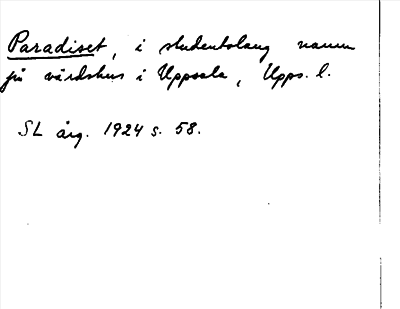 Paradiset, i studentslang namn
på värdshus i Uppsala, Upps. l.
SL årg. 1924 s. 58.